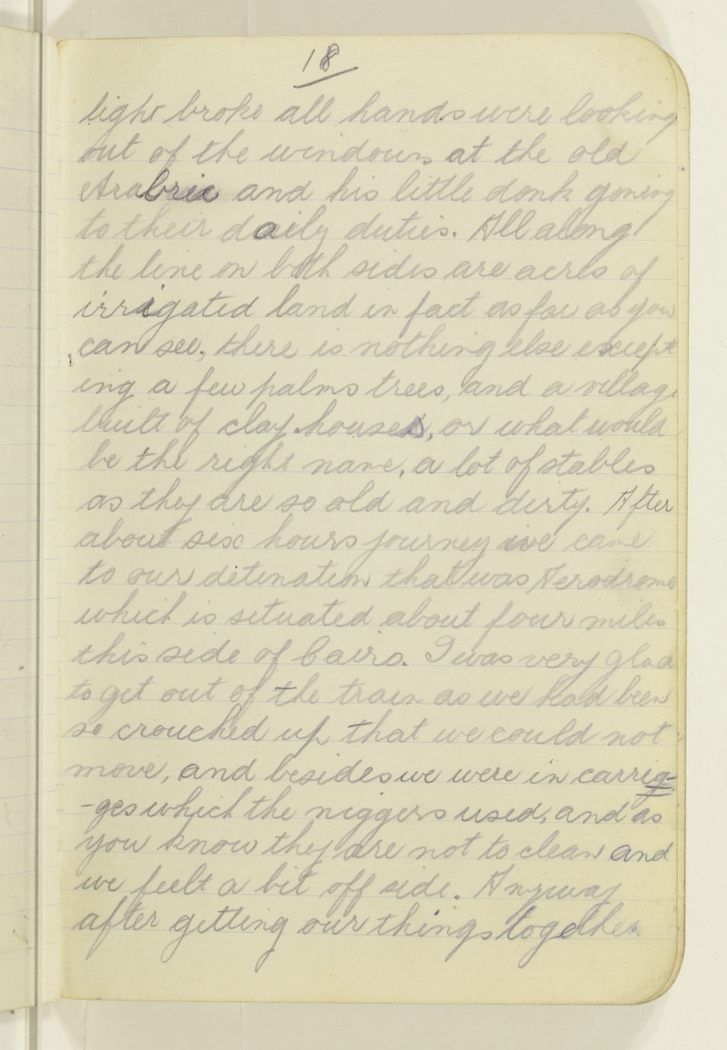 18
light broke all hands were looking
out of the windows at the old
Arabric and his little donk goning
to their daily duties. All along
the line on both sides are acres of
irrigated land in fact as far as you
can see, there is nothing else except
ing a few palms trees, and a village
built of clay houses, or what would
be the right name, a lot of stables
as they are so old and dirty. After
about six hours journey we came
to our detination that was Aerodrome
which is situated about four miles
this side of Cairo. I was very glad
to get out of the train as we had been
so crouched up that we could not
move, and besides we were in carrig-
-ges which the niggers used, and as
you know they are not to clean and
we feelt a bit off side. Anyway
after getting our things together